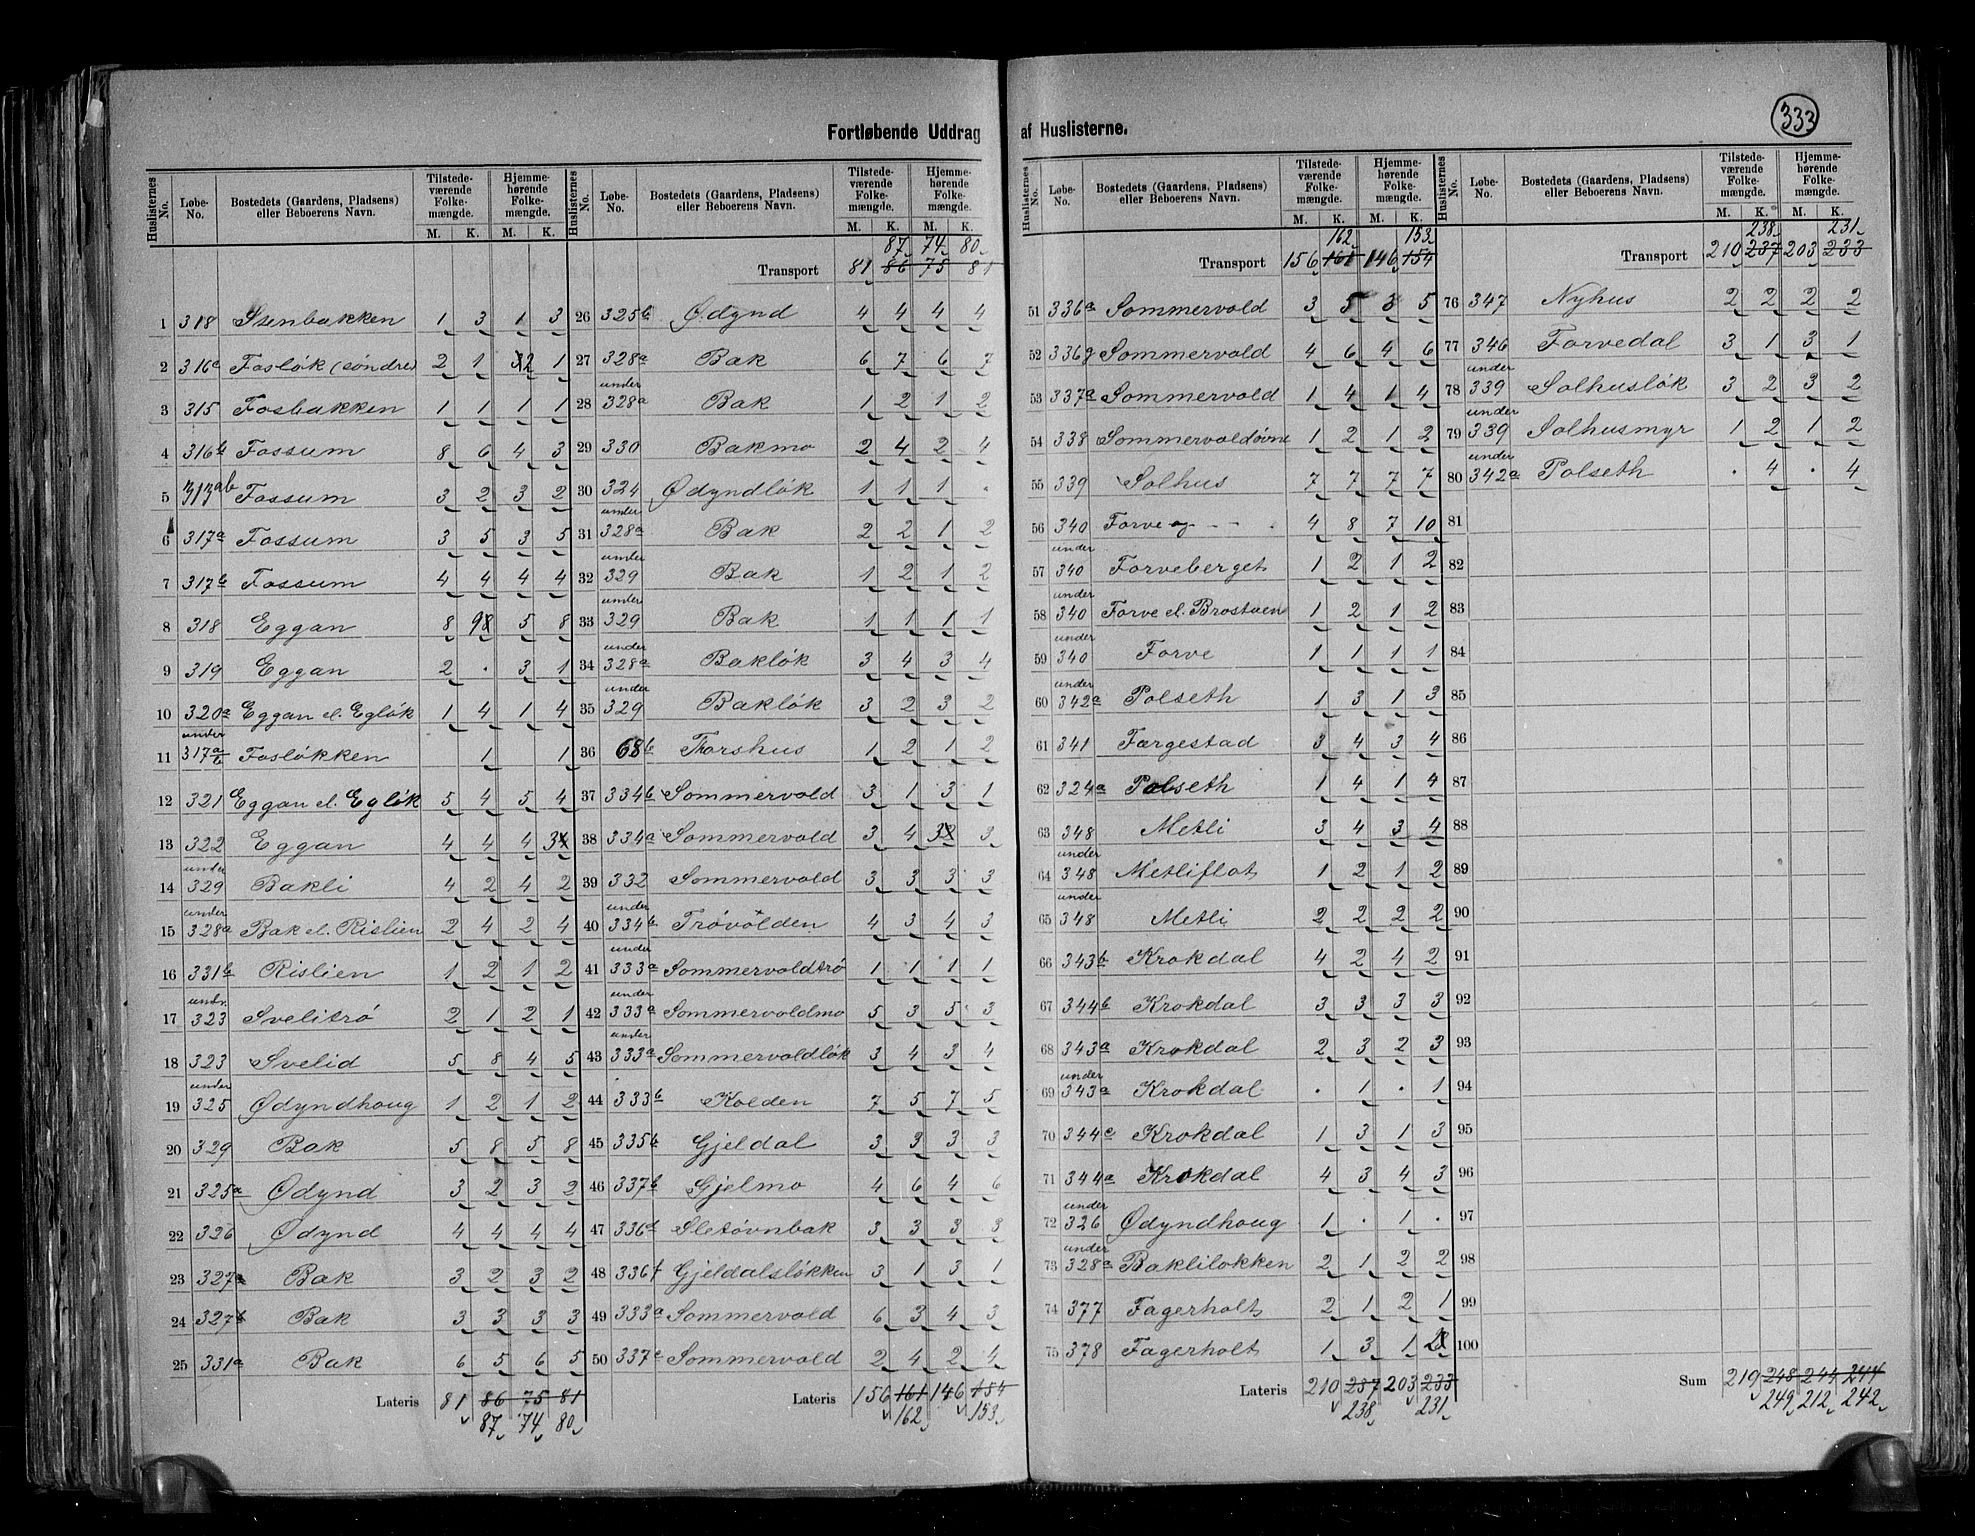 333
Fortløbende Uddrag af Huslisterne.
Huslisternes No. | Løbe-No. | Bostedets (Gaardens, Pladsens) eller Beboerens Navn. | Tilstede-værende Folke-mængde. M. K. | Hjemme-hørende Folke-mængde. M. K.
1 318 Stenbakken 1 3 1 3
2 316a Fosløk (søndre) 2 1 2 1
3 315 Fosbakken 1 1 1 1
4 316b Fossum 8 6 4 3
5 313ab Fossum 3 2 3 2
6 317a Fossum 3 5 3 5
7 317b Fossum 4 4 4 4
8 318 Eggan 8 9 5 8
9 319 Eggan 2 . 3 1
10 320a Eggan el. Egløk 1 4 1 4
11 under 317a/b Fosløkken 1 1
12 321 Eggan el. Egløk 5 4 5 4
13 322 Eggan 4 4 4 3
14 under 329 Bakli 4 2 4 2
15 under 328a Bak el. Rislien 2 4 2 4
16 331b Rislien 1 2 1 2
17 undr. 323 Svelitrø 2 1 2 1
18 323 Svelid 5 8 4 5
19 under 325 Ødyndhoug 1 2 1 2
20 329 Bak 5 8 5 8
21 325a Ødynd 3 2 3 2
22 326 Ødynd 4 4 4 4
23 327a Bak 3 2 3 2
24 327b Bak 3 3 3 3
25 331a Bak 6 5 6 5
Lateris 81 86 75 81
87 74 80
Huslisternes No. | Løbe-No. | Bostedets (Gaardens, Pladsens) eller Beboerens Navn. | Tilstede-værende Folke-mængde. M. K. | Hjemme-hørende Folke-mængde. M. K.
87 74 80
Transport 81 86 75 81
26 325b Ødynd 4 4 4 4
27 328a Bak 6 7 6 7
28 under 328a Bak 1 2 1 2
29 330 Bakmo 2 4 2 4
30 324 Ødyndløk 1 1 1 .
31 under 328a Bak 2 2 1 2
32 under 329 Bak 1 2 1 2
33 under 329 Bak 1 1 1 1
34 under 328a Bakløk 3 4 3 4
35 under 329 Bakløk 3 2 3 2
36 68b Thorshus 1 2 1 2
37 334b Sommervold 3 1 3 1
38 334a Sommervold 3 4 3 3
39 332 Sommervold 3 3 3 3
40 under 334b Trøvolden 4 3 4 3
41 under 333a Sommervoldtrø 1 1 1 1
42 under 333a Sommervoldmo 5 3 5 3
43 under 333a Sommervoldløk 3 4 3 4
44 333b Kolden 7 5 7 5
45 335b Gjeldal 3 3 3 3
46 337b Gjelmo 4 6 4 6
47 336d Sletøvnbak 3 3 3 3
48 336f Gjeldalsløkken 3 1 3 1
49 333a Sommervold 6 3 4 3
50 337c Sommervold 2 4 2 4
Lateris 156 161 146 154
162 153
Huslisternes No. | Løbe-No. | Bostedets (Gaardens, Pladsens) eller Beboerens Navn. | Tilstede-værende Folke-mængde. M. K. | Hjemme-hørende Folke-mængde. M. K.
162 153
Transport 156 161 146 154
51 336a Sommervold 3 5 3 5
52 336g Sommervold 4 6 4 6
53 337a Sommervold 1 4 1 4
54 338 Sommervoldøvne 1 2 1 2
55 339 Solhus 7 7 7 7
56 340 Forve og - - . 4 8 7 10
57 under 340 Forveberget 1 2 1 2
58 under 340 Forve el. Brostuen 1 2 1 2
59 under 340 Forve 1 1 1 1
60 under 342a Polseth 1 3 1 3
61 341 Færgestad 3 4 3 4
62 324a Polseth 1 4 1 4
63 348 Metli 3 4 3 4
64 under 348 Metliflot 1 2 1 2
65 under 348 Metli 2 2 2 2
66 343b Krokdal 4 2 4 2
67 344b Krokdal 3 3 3 3
68 343a Krokdal 2 3 2 3
69 under 343a Krokdal . 1 . 1
70 344c Krokdal 1 3 1 3
71 344a Krokdal 4 3 4 3
72 under 326 Ødyndhoug 1 . 1 .
73 under 328a Baklilokken 2 1 2 2
74 377 Fagerholt 2 1 2 1
75 378 Fagerholt 1 3 1
Lateris 210 237 203 233
238 231
Huslisternes No. | Løbe-No. | Bostedets (Gaardens, Pladsens) eller Beboerens Navn. | Tilstede-værende Folke-mængde. M. K. | Hjemme-hørende Folke-mængde. M. K.
238 231
Transport 210 237 203 233
76 347 Nyhus 2 2 2 2
77 346 Forvedal 3 1 3 1
78 under 339 Solhusløk 3 2 3 2
79 under 339 Solhusmyr 1 2 1 2
80 under 342a Polseth . 4 . 4
81
82
83
84
85
86
87
88
89
90
91
92
93
94
95
96
97
98
99
100
Sum 219 248 244
249 212 242